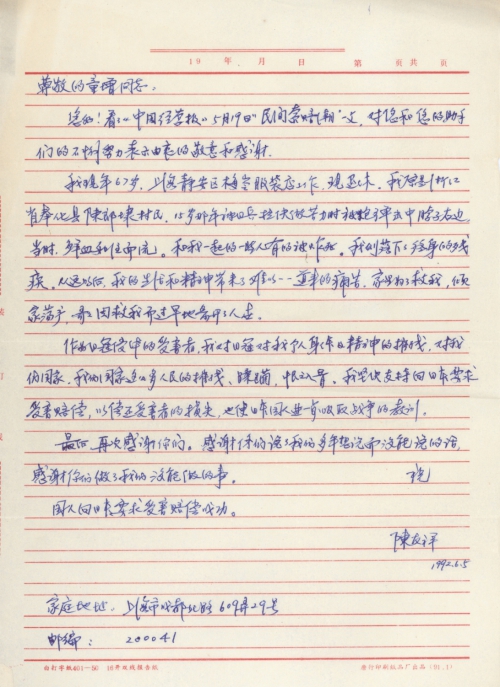 19 年 月 日 第 页共 页
尊敬的童增同志：
您好！看《中国经营报》5月19日“民间索赔潮”文，对您和您的助手
们的不懈努力表示由衷的敬意和感谢。
我现年67岁，上海静安区 服装店工作，现退休，我原浙江
省奉化县陳 村民，15岁那年被日兵 时被枪弹击中脖子右边
当时，鲜血和 流。和我一起的 人有的被炸死。我们落下了终身的残
疾，从这以后，我的生活和精神带来了难以一一道来的痛苦，家里为了救我，倾
家荡产， 因救我而过早地离开了人世。
作为日军侵华的受害者，我对日军对我个人身体及精神的摧残，对我
们国家、我们国家这么多人民的摧残、 ，恨之入骨。我坚决支持向日本要求
受害赔偿，以偿还受害者的损失，也使日本国人民 吸取战争的教训。
最后再次感谢你们。感谢你们说了我们多年想说而没能说的话，
感谢你们做了我们没能做的事。 祝
国人向日本要求受害赔偿成功。
陳友祥
1992.6.5
家庭地址：上海市成都北路609弄29号
邮编： 200041
自打字纸401—80 16开双线报告纸